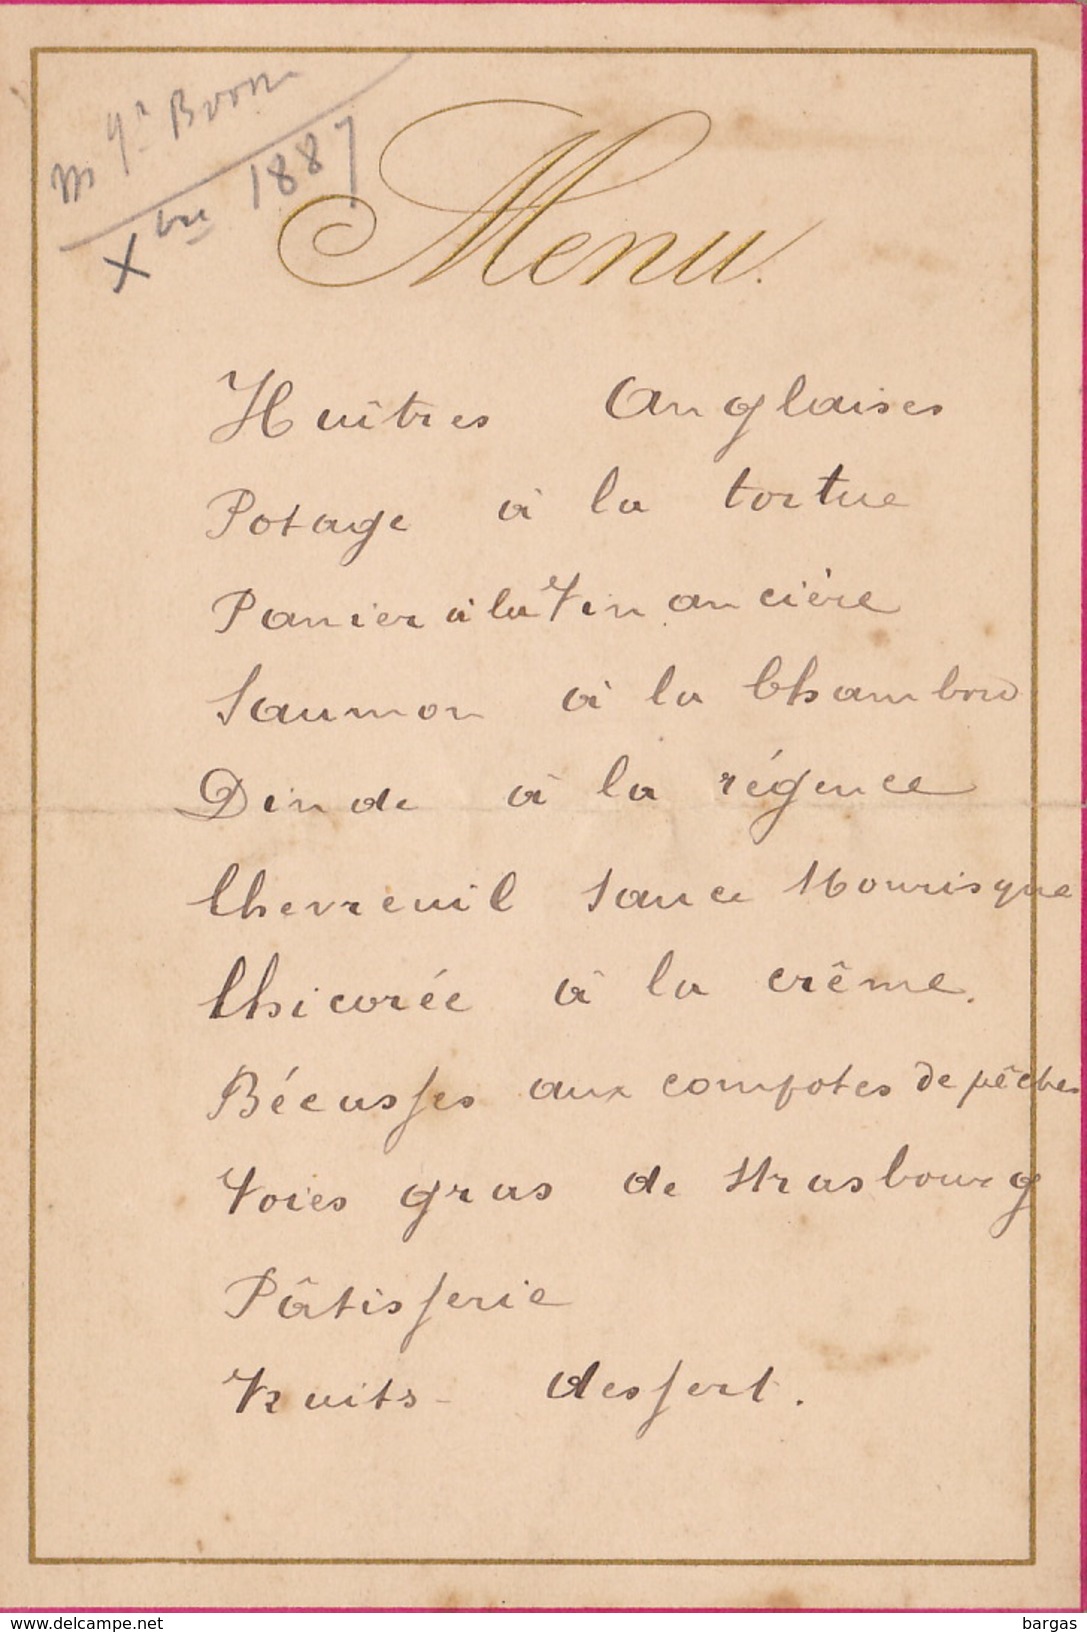 Xbre 1887
Menu.
Huîtres Anglaises
Potage à la tortue
Panier à la Financière
Saumon à la Chambord
Dinde à la régence
Chevreuil Sauce Mourisque
Chicorée à la crême.
Bécasses aux compotes de pêches
Foies gras de Strasbourg
Pâtisserie
Fruits - dessert.
www.delcampe.net
bargas